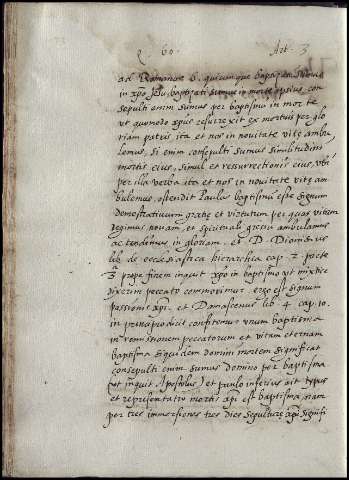 Q. 60. Art. 3
ad Romanos 6. quicumque baptizati sumus
in xpo Jesu, baptizati sumus in morte ipsius, con
sepulti enim sumus per baptismum in morte
ut quomodo xpus resurrexit ex mortuis per glo
riam patris ita et nos in novitate vitę ambu
lemus, si enim consepulti sumus similitudini
mortis eius, simul et ressurrectionis eius, ubi
per illa verba ita et nos in novitate vitę am
bulemus, ostendit Paulus baptismum esse signum
demostrativum gratię et virtutum per quas vitam
degimus novam, et spirituali gressu ambulamus
ac tendimus in gloriam. et D. Dionisius
lib. de ecclesiastica hierarchia cap. 2. parte
3. prope finem inquit xpo in baptismo ut mixtice
dixerim peccato commorimur. ergo est signum
passionis xpi. et Damascenus lib. 4 cap. 10.
in principio dicit confitemur unum baptisma
in remissionem peccatorum et vitam eternam
baptisma siquidem domini mortem significat
consepulti enim sumus domino per baptisma
ut inquit Apostolus) et paulo inferius ait typus
et representatio mortis xpi est baptisma nam
per tres immersiones tres dies sepulturę xpi signifi